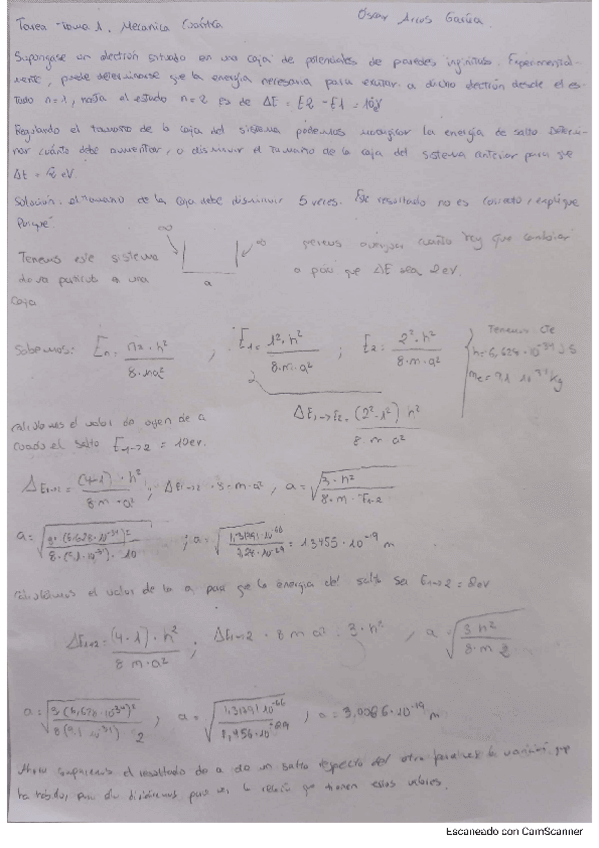 Tarea Tema 1. Mecanica Cuántica Óscar Arcos García.
Supongase un electrón situado en una caja de potenciales de paredes infinitas. Experimental-
mente, puede determinarse que la energía necesaria para excitar a dicho electrón desde el es-
tado n=1, hasta el estado n=2 es de ΔE = E2 - E1 = 10eV
Regulando el tamaño de la caja del sistema podemos modificar la energía de salto. Determi-
nar cuánto debe aumentar, o disminuir el tamaño de la caja del sistema anterior para que
ΔE = eV
Solución: el tamaño de la caja debe disminuir 5 veces. Este resultado no es correcto, explique
Porqué.
∞ ∞
Tenemos este sistema
a
una particula a una
caja
queremos cuanto hay que cambiar
a para que ΔE sea 2eV.
Sabemos: En = n2 · h² / 8·ma² ; E1 = 1²·h² / 8·m·a² ; E2 = 2²·h² / 8·m·a²
Tenemos
h = 6,624·10⁻³⁴ J S
me = 9,1 10⁻³¹ Kg
ΔE1→E2 = (2²-1²) h² / 8·m·a²
calculamos el valor de a
cuando el salto E1→2 = 10ev.
ΔE1→2 = (4-1)·h² / 8·m·a² ; ΔE1→2 · 8·m·a² , a = √(3·h² / 8·m·E1-2)
a = √(3·(6,626·10⁻³⁴)² / 8·(9,1·10⁻³¹)·10) ; a = √(1,3171·10⁻⁶⁶ / 10⁻²⁹) = 1,3455·10⁻¹⁹ m
calculamos el valor de la a para que la energia del salto sea E1→2 = eV
ΔE1→2 = (4-1)·h² / 8 m·a² ; ΔE1→2 · 8 m a² = 3·h² , a = √(3 h² / 8·m 2)
a = √(3 (6,626·10⁻³⁴)² / 8(9,1·10⁻³¹) 2) ; a = √(1,3171·10⁻⁶⁶ / 1,456·10⁻²⁹) ; a = 3,0086·10⁻¹⁹ m
Ahora comparamos el resultado de a de un salto respecto del otro para ver la variación que
ha habido, para ello dividiremos para ver la relación que tienen estos valores.
Escaneado con CamScanner